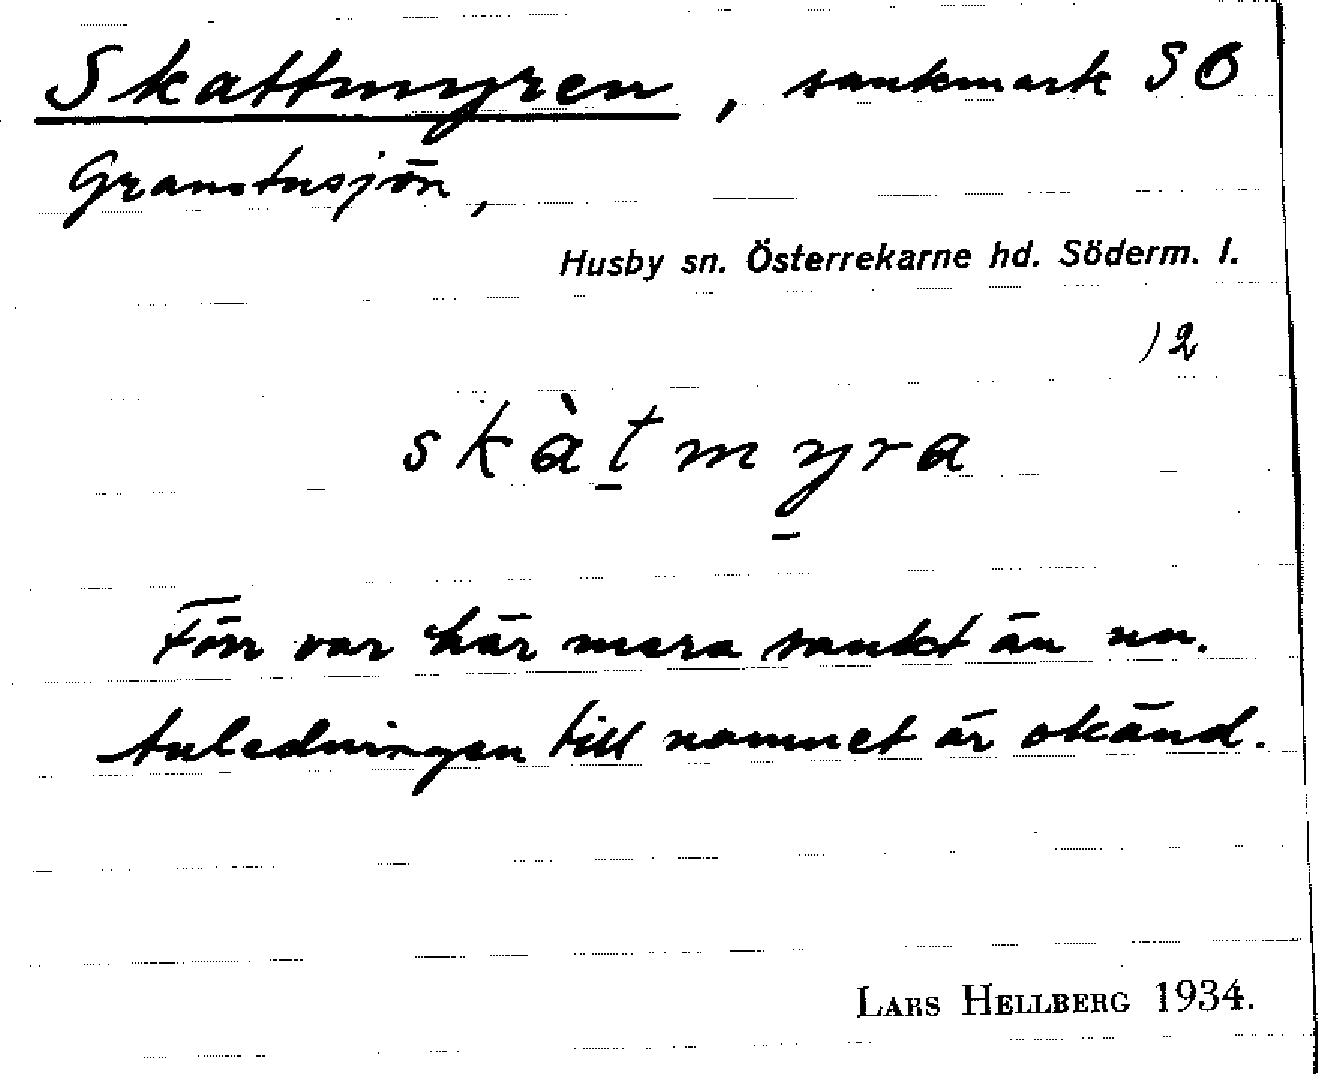 Skattmyren, sankmark SO
Granstusjön,
Husby sn. Österrekarne hd. Söderm. l.
)2
skàt̲my̲ra
Förr var här mera sankt än nu.
Anledningen till namnet är okänd.
LARS HELLBERG 1934.